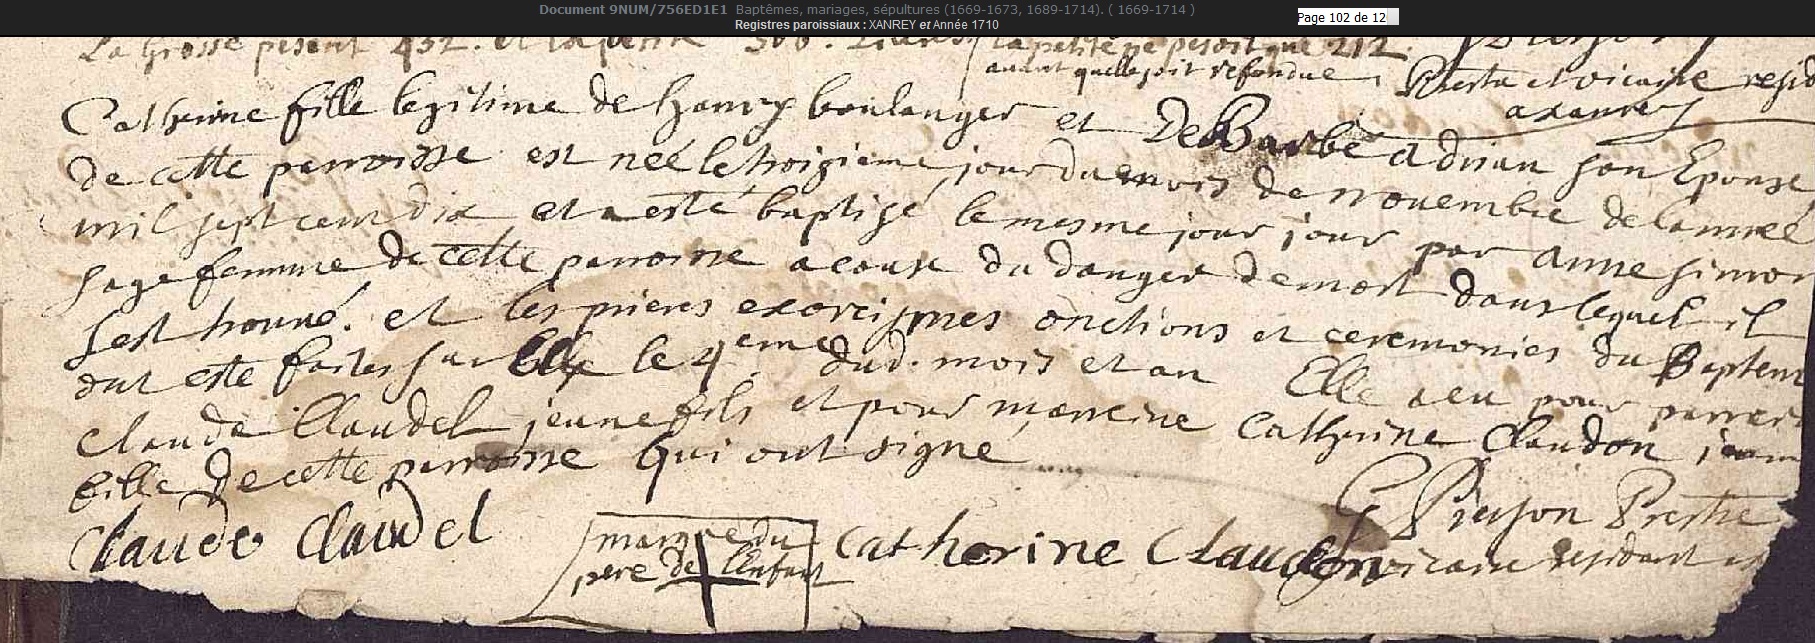 Document 9NUM/756ED1E1 Baptêmes, mariages, sépultures (1669-1673, 1689-1714). ( 1669-1714 )
Page 102 de 12
Registres paroissiaux : XANREY et Année 1710
La Grosse pesent 432. et la petite 306. la petite ne pesoit que 212.
auant quelle soit refondue Prestre et vicaire resid
a xanrey
Catherine fille legitime de hanry boulanger et De Barbe adrian son Epouse
de cette parroisse est neé le troizieme jour du mois de nouembre de lanneé
mil sept cent dix et a esté baptisé le mesme jour jour par anne simon
sage femme de cette parroisse a cause du danger de mort dans lequel il
sest trouué. et les prieres exorcismes onctions et ceremonies du Baptem
ont este faites sur Elle le 4eme dud. mois et an Elle a eu pour parrein
claude Claudel jeune fils et pour marreine Catherine Claudon jeun
fille de cette parroisse qui ont signé
C Pierson Prestre
Claude Claudel marque du catherine Claudon vicaire residant
pere de Lenfant